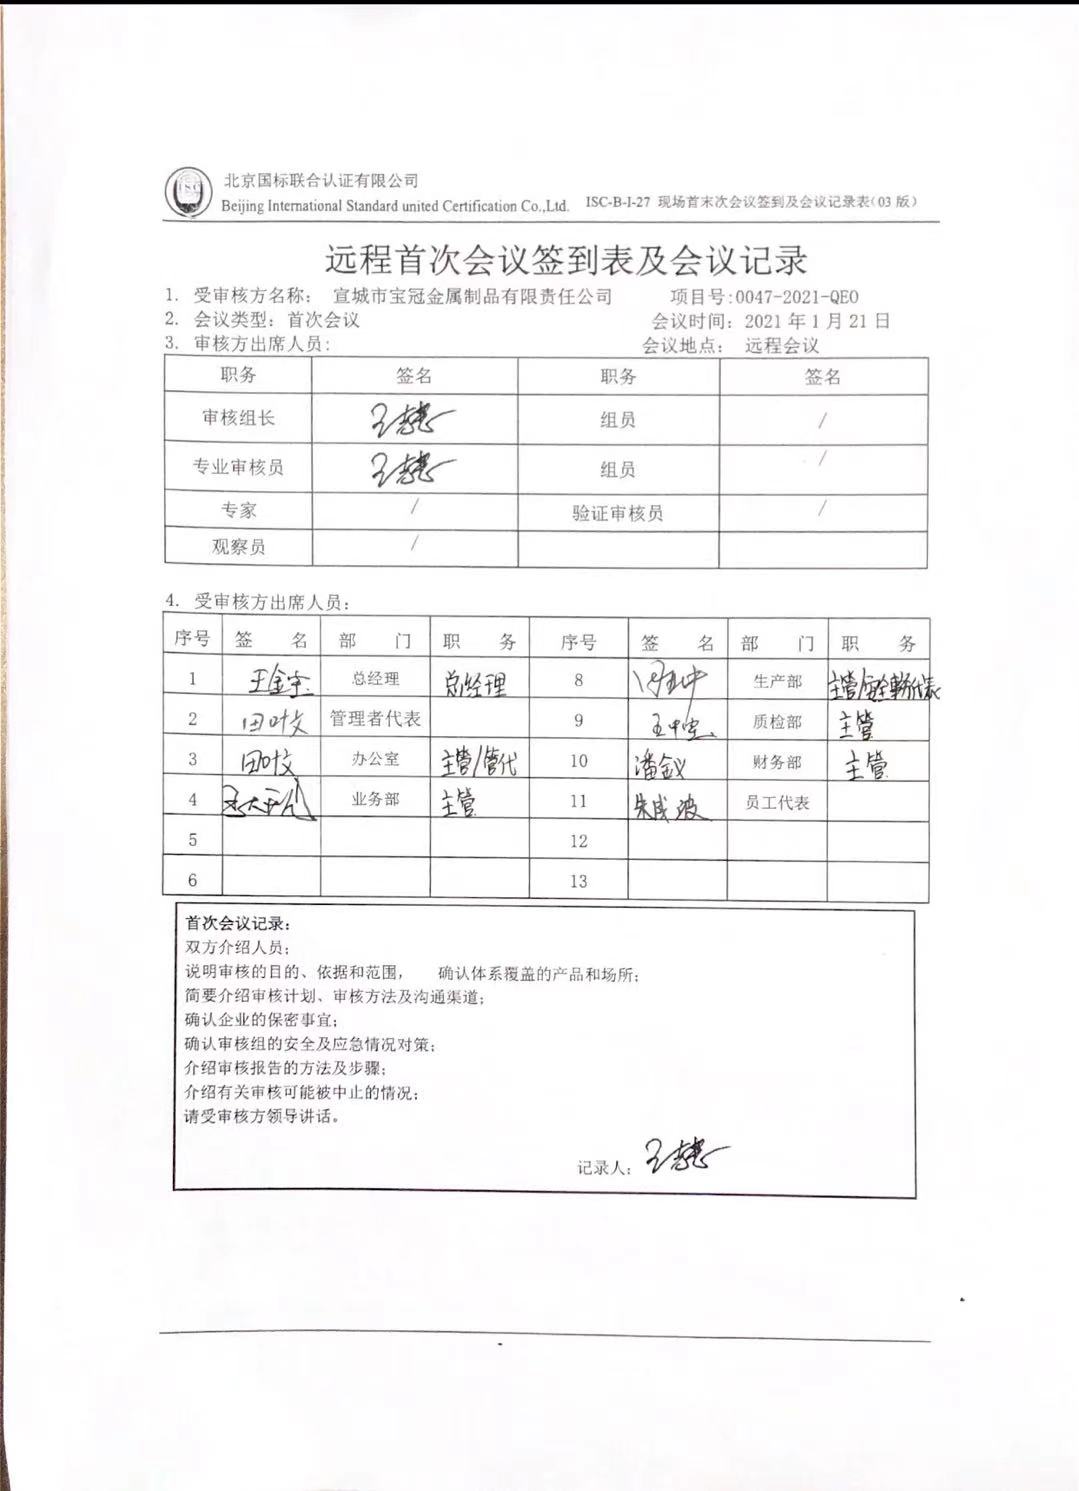 北京国标联合认证有限公司
Beijing International Standard united Certification Co.,Ltd. ISC-B-I-27 现场首末次会议签到及会议记录表(03 版)
远程首次会议签到表及会议记录
1. 受审核方名称： 宣城市宝冠金属制品有限责任公司 项目号:0047-2021-QEO
2. 会议类型：首次会议 会议时间：2021 年 1 月 21 日
3. 审核方出席人员: 会议地点： 远程会议
职务 签名 职务 签名
审核组长 组员 /
专业审核员 组员 /
专家 / 验证审核员 /
观察员 /
4. 受审核方出席人员：
序号 签 名 部 门 职 务 序号 签 名 部 门 职 务
1 王金宇 总经理 总经理 8 生产部 主管/安全事务代表
2 田叶文 管理者代表 9 质检部 主管
3 田叶文 办公室 主管/管代 10 潘金议 财务部 主管
4 业务部 主管 11 朱成波 员工代表
5 12
6 13
首次会议记录：
双方介绍人员；
说明审核的目的、依据和范围， 确认体系覆盖的产品和场所；
简要介绍审核计划、审核方法及沟通渠道；
确认企业的保密事宜；
确认审核组的安全及应急情况对策；
介绍审核报告的方法及步骤；
介绍有关审核可能被中止的情况；
请受审核方领导讲话。
记录人：